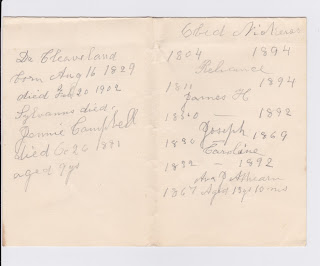 Dr Cleaveland
born Aug 16 1829
died Feb 20 1902
Sylvanus died,
Jennie Campbell
died Oc 20 1891
aged 9 ys
Obed Nickerson
1804 1894
Reliance
1811 1894
James H
1850 — 1892
Joseph
1830 1869
Caroline
1832 — 1892
Ahearn
1867 Aged 13 ys 10 mo